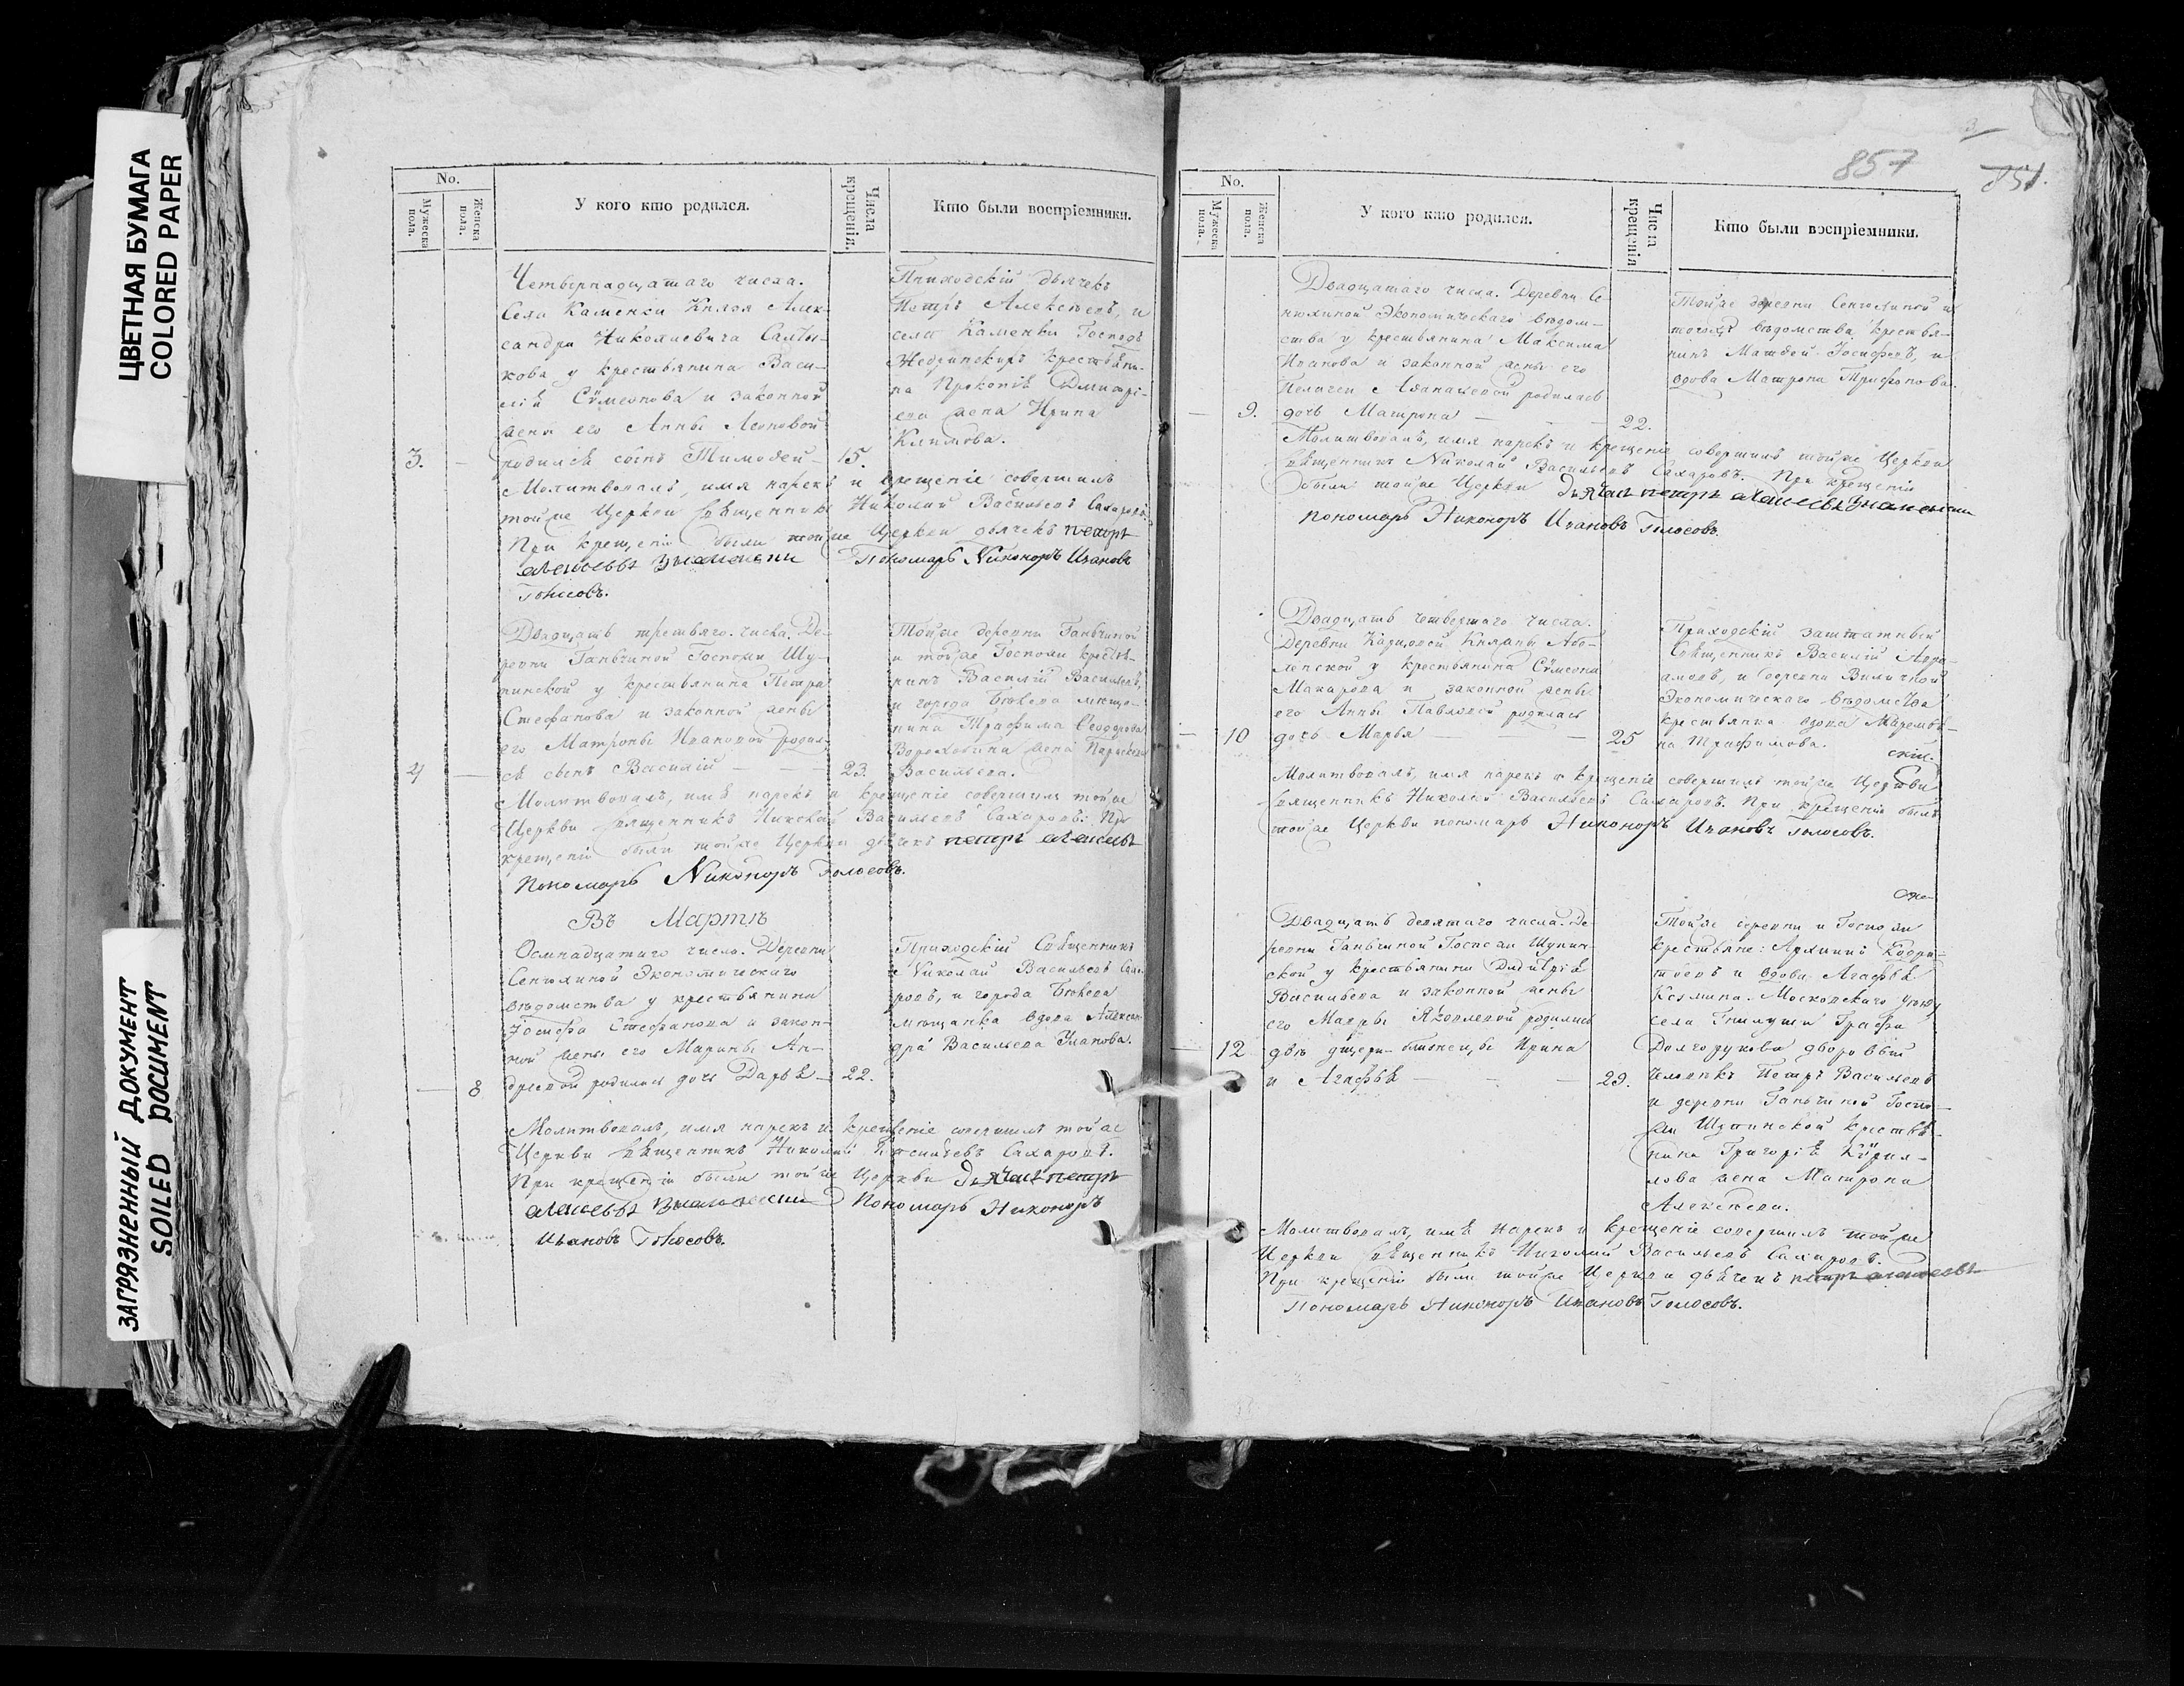 ЦВЕТНАЯ БУМАГА
COLORED PAPER
ЗАГРЯЗНЕННЫЙ ДОКУМЕНТ
SOILED DOCUMENT
No.
Мужеска пола.
Женска пола.
У кого кто родился.
Числа крещенія.
Кто были воспріемники.
Четвернадцатаго числа.
Села Каменки Князя Алек-
сандра Николаевича Салты-
кова у крестьянина Васи-
лія Сѵмеонова и законной
жены его Анны Леоновой
3. — родился сынъ Тимофей — 15.
Приходскій дьячекъ
Петръ Алексѣевъ, и
села Каменки Господъ
крестьяни-
на Прокопія Дмитрі-
ева жена Ирина
Климова.
Молитвовалъ, имя нарекъ и крещеніе совершилъ
тойже Церкви Священникъ Николай Васильевъ Сахаровъ.
При крещеніи были тойже Церкви дьячекъ петръ
алексевъ Пономарь Никоноръ Ивановъ
Голосовъ.
Двадцать третьяго числа. Де-
ревни Ганькиной Госпожи Шу-
пинской у крестьянина Петра
Стефанова и законной жены
его Матроны Ивановой родил-
4 — ся сынъ Василій — — — 23.
Тойже деревни Ганькиной
и тойже Госпожи крестья-
нинъ Василій Васильевъ,
и города мѣща-
нина Трофима Ѳеодорова
жена Параскева
Васильева.
Молитвовалъ, имя нарекъ и крещеніе совершилъ тойже
Церкви Священникъ Николай Васильевъ Сахаровъ. При
крещеніи были тойже Церкви дьячекъ петръ алексевъ
Пономарь Никоноръ Голосовъ.
Въ Мартѣ
Осмнадцатаго числа. Деревни
Сенюкиной Экономическаго
вѣдомства у крестьянина
Іосифа Стефанова и закон-
ной жены его Марины Ан-
— 8 дреевой родилась дочь Дарья — 22.
Приходскій Священникъ
Николай Васильевъ Саха-
ровъ, и города
мѣщанка вдова Алексан-
дра Васильева Уланова.
Молитвовалъ, имя нарекъ и крещеніе совершилъ тойже
Церкви Священникъ Николай Васильевъ Сахаровъ.
При крещеніи были тойже Церкви дьячекъ петръ
алексевъ Пономарь Никоноръ
Ивановъ Голосовъ.
3
857
851.
No.
Мужеска пола.
Женска пола.
У кого кто родился.
Числа крещенія
Кто были воспріемники.
Двадцатаго числа. Деревни Се-
нюкиной Экономическаго вѣдом-
ства у крестьянина Максима
Иванова и законной жены его
Пелагеи Аѳанасьевой родилась
— 9. дочь Матрона — — 22.
Тойже деревни Сенюкиной и
тогожъ вѣдомства крестья-
нинъ Матвей Іосифовъ, и
вдова Матрона Трифонова.
Молитвовалъ, имя нарекъ и крещеніе совершилъ тойже Церкви
Священникъ Николай Васильевъ Сахаровъ. При крещеніи
были тойже Церкви дьячекъ петръ алексевъ
пономарь Никоноръ Ивановъ Голосовъ.
Двадцать четвертаго числа.
Деревни Княжны Або-
ленской у крестьянина Сѵмеона
Макарова и законной жены
его Анны Павловой родилась
— 10 дочь Марья — — 25
Приходскій заштатный
Священникъ Василій Авра-
амовъ, и деревни
Экономическаго вѣдомства
крестьянка вдова
на Трофимова.
Молитвовалъ, имя нарекъ и крещеніе совершилъ тойже Церкви
Священникъ Николай Васильевъ Сахаровъ. При крещеніи былъ
тойже Церкви пономарь Никоноръ Ивановъ Голосовъ.
Двадцать девятаго числа. Де-
ревни Ганькиной Госпожи Шупин-
ской у крестьянина Димитрія
Васильева и законной жены
его Мавры Яковлевой родились
— 12 двѣ дщери-близнецы Ирина
и Агафья — — — 29.
Тойже деревни и Госпожи
крестьяне:
и вдова Агафья
Козмина. Московскаго уѣзду
села Гнилуши Графа
Долгорукова дворовый
человѣкъ Петръ Васильевъ
и деревни Ганькиной Госпо-
жи Шупинской крестья-
нина Григорія Кѵрил-
лова жена Матрона
Алексѣева.
Молитвовалъ, имя нарекъ и крещеніе совершилъ тойже
Церкви Священникъ Николай Васильевъ Сахаровъ.
При крещеніи были тойже Церкви дьячекъ петръ алексеевъ
Пономарь Никоноръ Ивановъ Голосовъ.